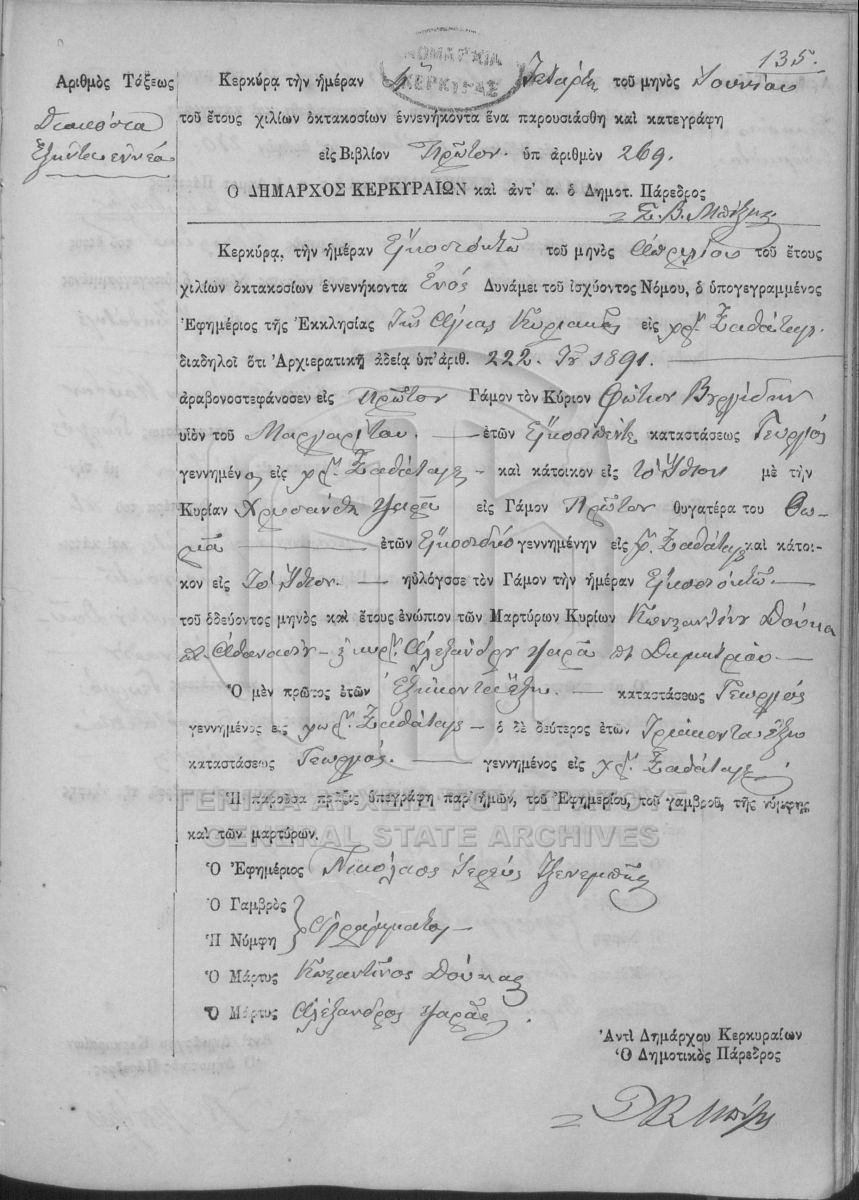 135.
ΝΟΜΑΡΧΙΑ
ΚΕΡΚΥΡΑΣ
Ἀριθμὸς Τάξεως
Διακόσια
Ἑξήντα εννέα
Κερκύρᾳ τὴν ἡμέραν Τετάρτη τοῦ μηνὸς Ἰουνίου
τοῦ ἔτους χιλίων ὀκτακοσίων ἐννενήκοντα ἕνα παρουσιάσθη καὶ κατεγράφη
εἰς Βιβλίον Πρῶτον. ὑπ ἀριθμὸν 269.
Ο ΔΗΜΑΡΧΟΣ ΚΕΡΚΥΡΑΙΩΝ καὶ ἀντ' α. ὁ Δημοτ. Πάρεδρος
Κερκύρᾳ, τὴν ἡμέραν Εἰκοσιοκτὼ τοῦ μηνὸς Ἀπριλίου τοῦ ἔτους
χιλίων ὀκτακοσίων ἐννενήκοντα Ἑνός Δυνάμει τοῦ ἰσχύοντος Νόμου, ὁ ὑπογεγραμμένος
Ἐφημέριος τῆς Ἐκκλησίας Τῆς Ἁγίας Κυριακῆς εἰς χρ.
διαδηλοῖ ὅτι Ἀρχιερατικῇ ἀδείᾳ ὑπ' ἀριθ. 222. Τοῦ 1891.
ἀραβονοστεφάνοσεν εἰς Πρῶτον Γάμον τὸν Κύριον Φώτιον
υἱὸν τοῦ Μαργαρίτου. ἐτῶν Εἰκοσιπέντε καταστάσεως Γεωργός
γεννημένον εἰς χρ. καὶ κάτοικον εἰς τὸ Ἴδιον μὲ τὴν
Κυρίαν Χρυσάνθη Ψαρᾶ εἰς Γάμον Πρῶτον θυγατέρα του Θω-
μᾶ ἐτῶν Εἰκοσιδύο γεννημένην εἰς χρ. καὶ κάτοι-
κον εἰς Τὸ Ἴδιον. ηὐλόγσσε τὸν Γάμον τὴν ἡμέραν Εἰκοσιοκτὼ
τοῦ ὁδεύοντος μηνὸς καὶ ἔτους ἐνώπιον τῶν Μαρτύρων Κυρίων Κωνσαντῖνον Δούκα
Ἀθανασίου Ἀλέξανδρον Ψαρᾶ Δημητρίου
Ὁ μὲν πρῶτος ἐτῶν Ἑξήκοντα ἕξι. καταστάσεως Γεωργός
γεννημένος εἰς χωρ. ὁ δὲ δεύτερος ἐτῶν Τριάκοντα ἕξι
καταστάσεως Γεωργός. γεννημένος εἰς χρ.
Ἡ παροῦσα πρᾶξις ὑπεγράφη παρ' ἡμῶν, τοῦ Ἐφημερίου, τοῦ γαμβροῦ, τῆς νύμφης
καὶ τῶν μαρτύρων.
ΓΕΝΙΚΑ ΑΡΧΕΙΑ ΤΟΥ ΚΡΑΤΟΥΣ
GENERAL STATE ARCHIVES
Ὁ Ἐφημέριος Νικόλαος Ἱερεύς
Ὁ Γαμβρὸς
Ἡ Νύμφη Ἀγράμματοι
Ὁ Μάρτυς Κωσαντῖνος Δούκας
Ὁ Μάρτυς Ἀλέξανδρος Ψαρᾶς.
Ἀντὶ Δημάρχου Κερκυραίων
Ὁ Δημοτικὸς Πάρεδρος